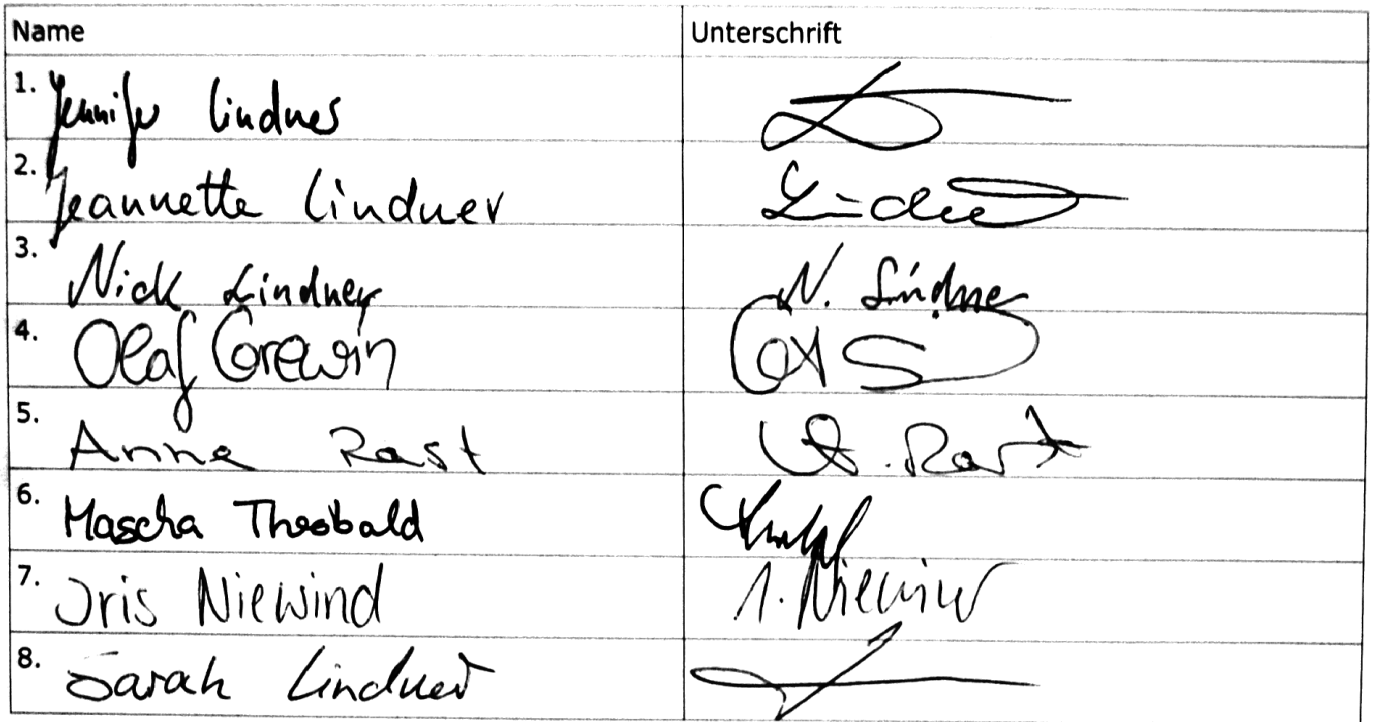 Name Unterschrift
1. Jennifer Lindner
2. Jeannette Lindner Lindner
3. Nick Lindner N. Lindner
4. Olaf Grewin
5. Anna Rast A. Rast
6. Mascha Theobald
7. Iris Niewind I. Niewind
8. Sarah Lindner